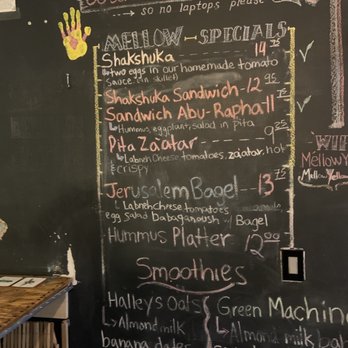 so no laptops please
MELLOW - SPECIALS
Shakshuka 14.75
two eggs in our homemade tomato
sauce. (in skillet)
Shakshuka Sandwich - 12.95
Sandwich Abu-Rapha 11.75
Hummus, eggplant, salad in pita
Pita Za'atar 9.25
Labneh Cheese tomatoes, za'atar, hot
& crispy
Jerusalem Bagel - 13.75
Labneh cheese tomatoes
egg salad Babaganoush w/ Bagel
Hummus Platter 12.99
Smoothies
Halleys Oats
Almond milk
banana dates
Green Machine
Almond milk
WIFI
Mellow Y
Mellow Yellow